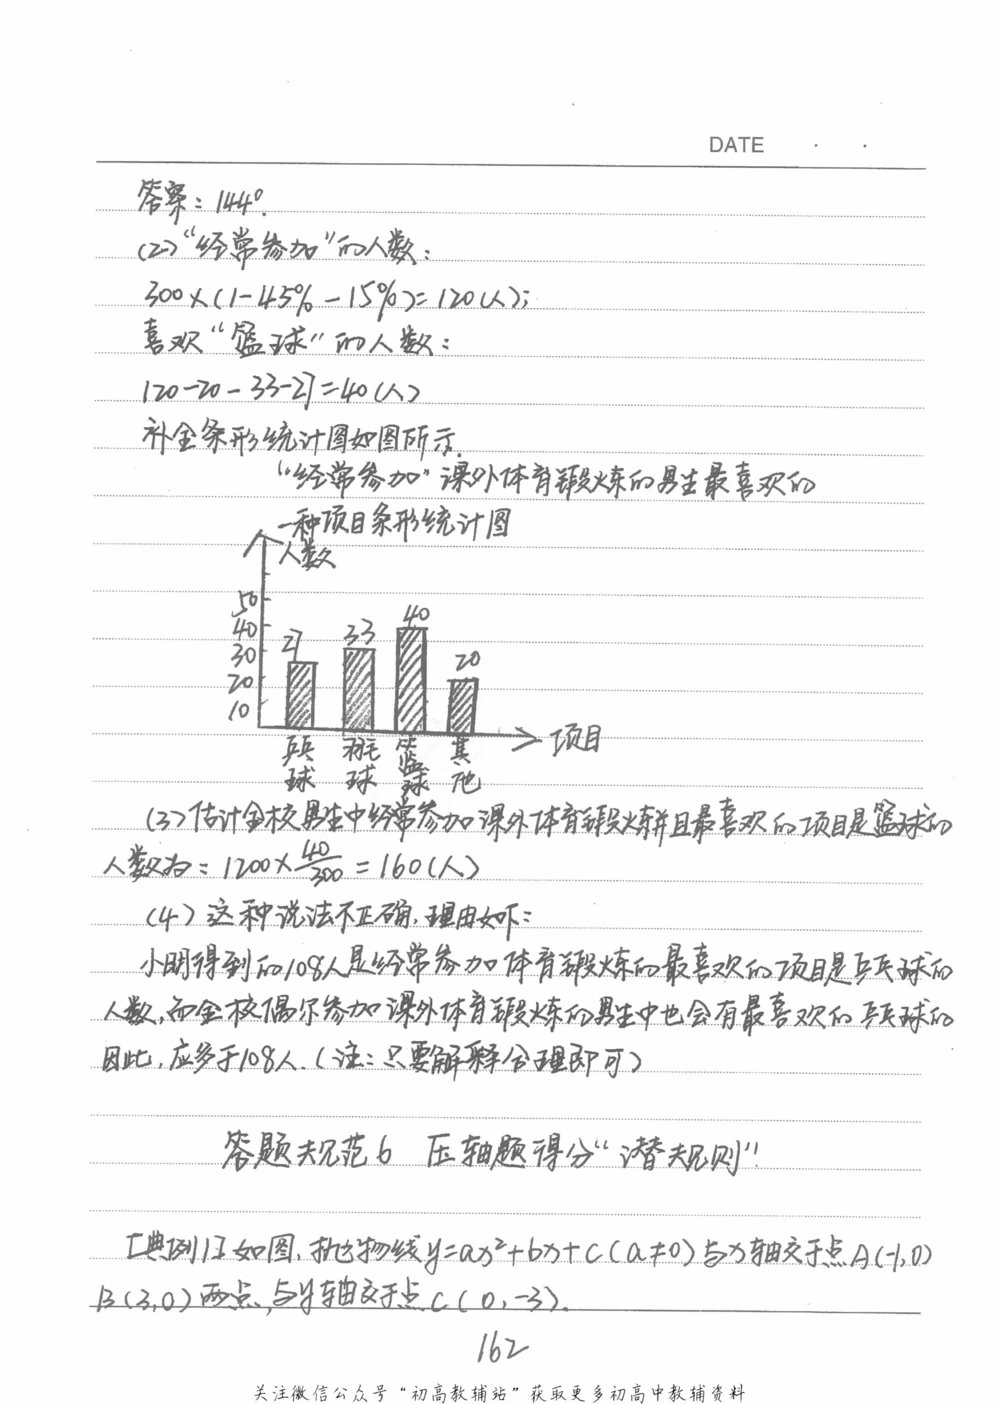 DATE · ·
答案：144°.
(2)“经常参加”的人数：
300×(1-45%-15%)=120(人);
喜欢“篮球”的人数：
120-20-33-27=40(人)
补全条形统计图如图所示.
“经常参加”课外体育锻炼的男生最喜欢的
一种项目条形统计图
人数
50
40
30
20
10
27 33 40 20
乒乓球 羽毛球 篮球 其他
项目
(3)估计全校男生中经常参加课外体育锻炼并且最喜欢的项目是篮球的
人数为：1200×40/300=160(人)
(4)这种说法不正确.理由如下：
小明得到的108人是经常参加体育锻炼的最喜欢的项目是乒乓球的
人数,而全校偶尔参加课外体育锻炼的男生中也会有最喜欢的乒乓球的
因此,应多于108人.(注：只要解释合理即可)
答题规范6 压轴题得分“潜规则”
[典例1]如图,抛物线y=ax²+bx+c(a≠0)与x轴交于点A(-1,0)
B(3,0)两点,与y轴交于点C(0,-3).
162
关注微信公众号“初高教辅站”获取更多初高中教辅资料